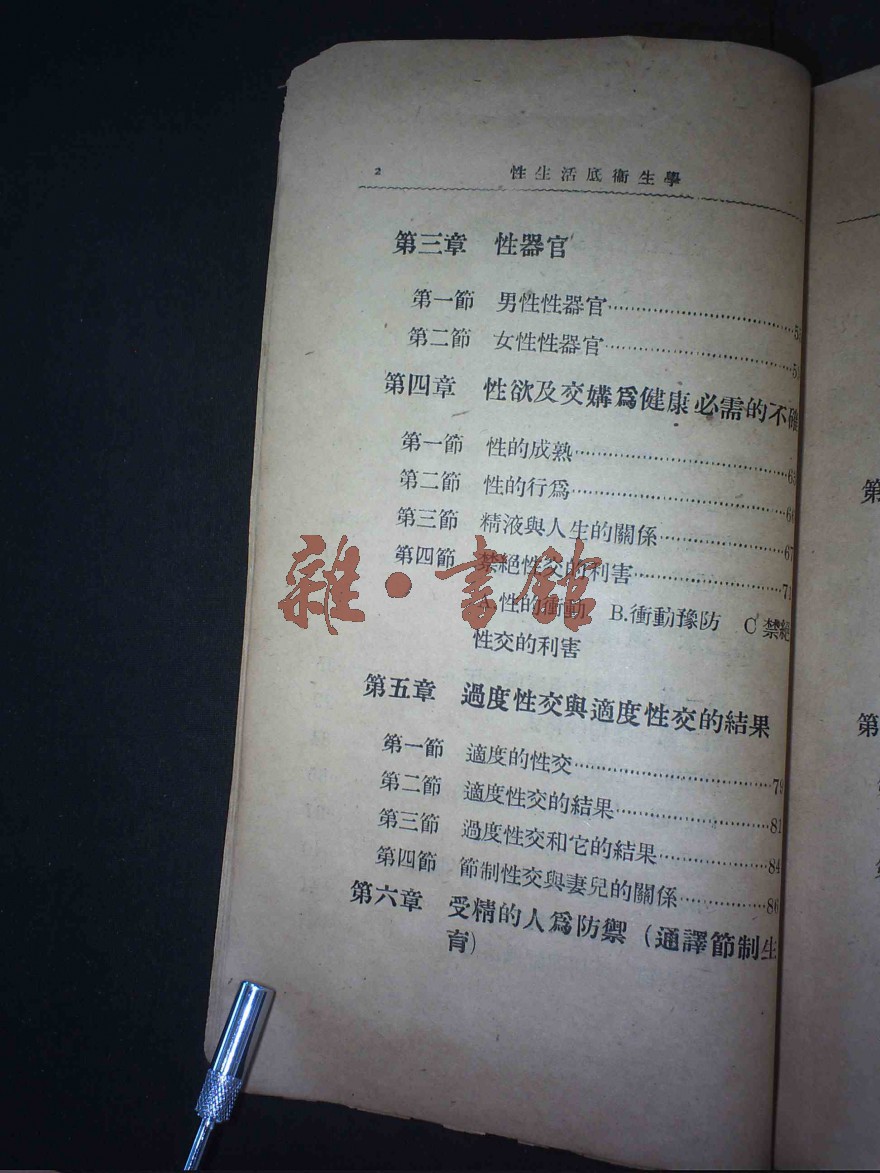 2 性生活底衞生學
第三章 性器官
第一節 男性性器官
第二節 女性性器官
第四章 性欲及交媾爲健康必需的不確
第一節 性的成熟
第二節 性的行爲
第三節 精液與人生的關係 67
第四節 禁絕性交的利害 71
A.性的衝動 B.衝動豫防 C 禁絕
性交的利害
第五章 過度性交與適度性交的結果
第一節 適度的性交 79
第二節 適度性交的結果 81
第三節 過度性交和它的結果 84
第四節 節制性交與妻兒的關係 86
第六章 受精的人爲防禦(通譯節制生
育)
雜·書館
第
第